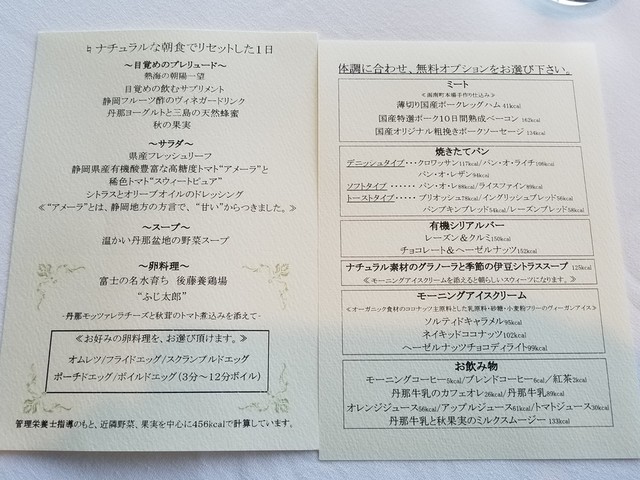 ♮ナチュラルな朝食でリセットした１日
～目覚めのプレリュード～
熱海の朝陽一望
目覚めの飲むサプリメント
静岡フルーツ酢のヴィネガードリンク
丹那ヨーグルトと三島の天然蜂蜜
秋の果実
～サラダ～
県産フレッシュリーフ
静岡県産有機酸豊富な高糖度トマト“アメーラ”と
橙色トマト“スウィートピュア”
シトラスとオリーブオイルのドレッシング
≪“アメーラ”とは、静岡地方の方言で、“甘い”からつきました。≫
～スープ～
温かい丹那盆地の野菜スープ
～卵料理～
富士の名水育ち 後藤養鶏場
“ふじ太郎”
-丹那モッツァレラチーズと秋茸のトマト煮込みを添えて-
≪お好みの卵料理を、お選び頂けます。≫
オムレツ/フライドエッグ/スクランブルドエッグ
ポーチドエッグ/ボイルドエッグ(３分～１２分ボイル)
管理栄養士指導のもと、近隣野菜、果実を中心に456kcalで計算しています。
体調に合わせ、無料オプションをお選び下さい。
ミート
≪函南町本場手作り仕込み≫
薄切り国産ポークレッグハム 41kcal
国産特選ポーク10日間熟成ベーコン 162kcal
国産オリジナル粗挽きポークソーセージ 124kcal
焼きたてパン
デニッシュタイプ・・・クロワッサン117kcal/パン・オ・ライチ106kcal
パン・オ・レザン94kcal
ソフトタイプ・・・・・パン・オ・レ88kcal/ライスファイン89kcal
トーストタイプ・・・・ブリオッシュ78kcal/イングリッシュブレッド56kcal
パンプキンブレッド54kcal/レーズンブレッド56kcal
有機シリアルバー
レーズン＆クルミ150kcal
チョコレート＆ヘーゼルナッツ152kcal
ナチュラル素材のグラノーラと季節の伊豆シトラススープ 125kcal
≪モーニングアイスクリームを添えると朝らしいスウィーツになります。≫
モーニングアイスクリーム
≪オーガニック食材のココナッツ主原料とした乳原料・砂糖・小麦粉フリーのヴィーガンアイス≫
ソルティドキャラメル95kcal
ネイキッドココナッツ102kcal
ヘーゼルナッツチョコディライト99kcal
お飲み物
モーニングコーヒー5kcal/ブレンドコーヒー6kcal/紅茶2kcal
丹那牛乳のカフェオレ26kcal/丹那牛乳89kcal
オレンジジュース56kcal/アップルジュース61kcal/トマトジュース30kcal
丹那牛乳と秋果実のミルクスムージー 133kcal